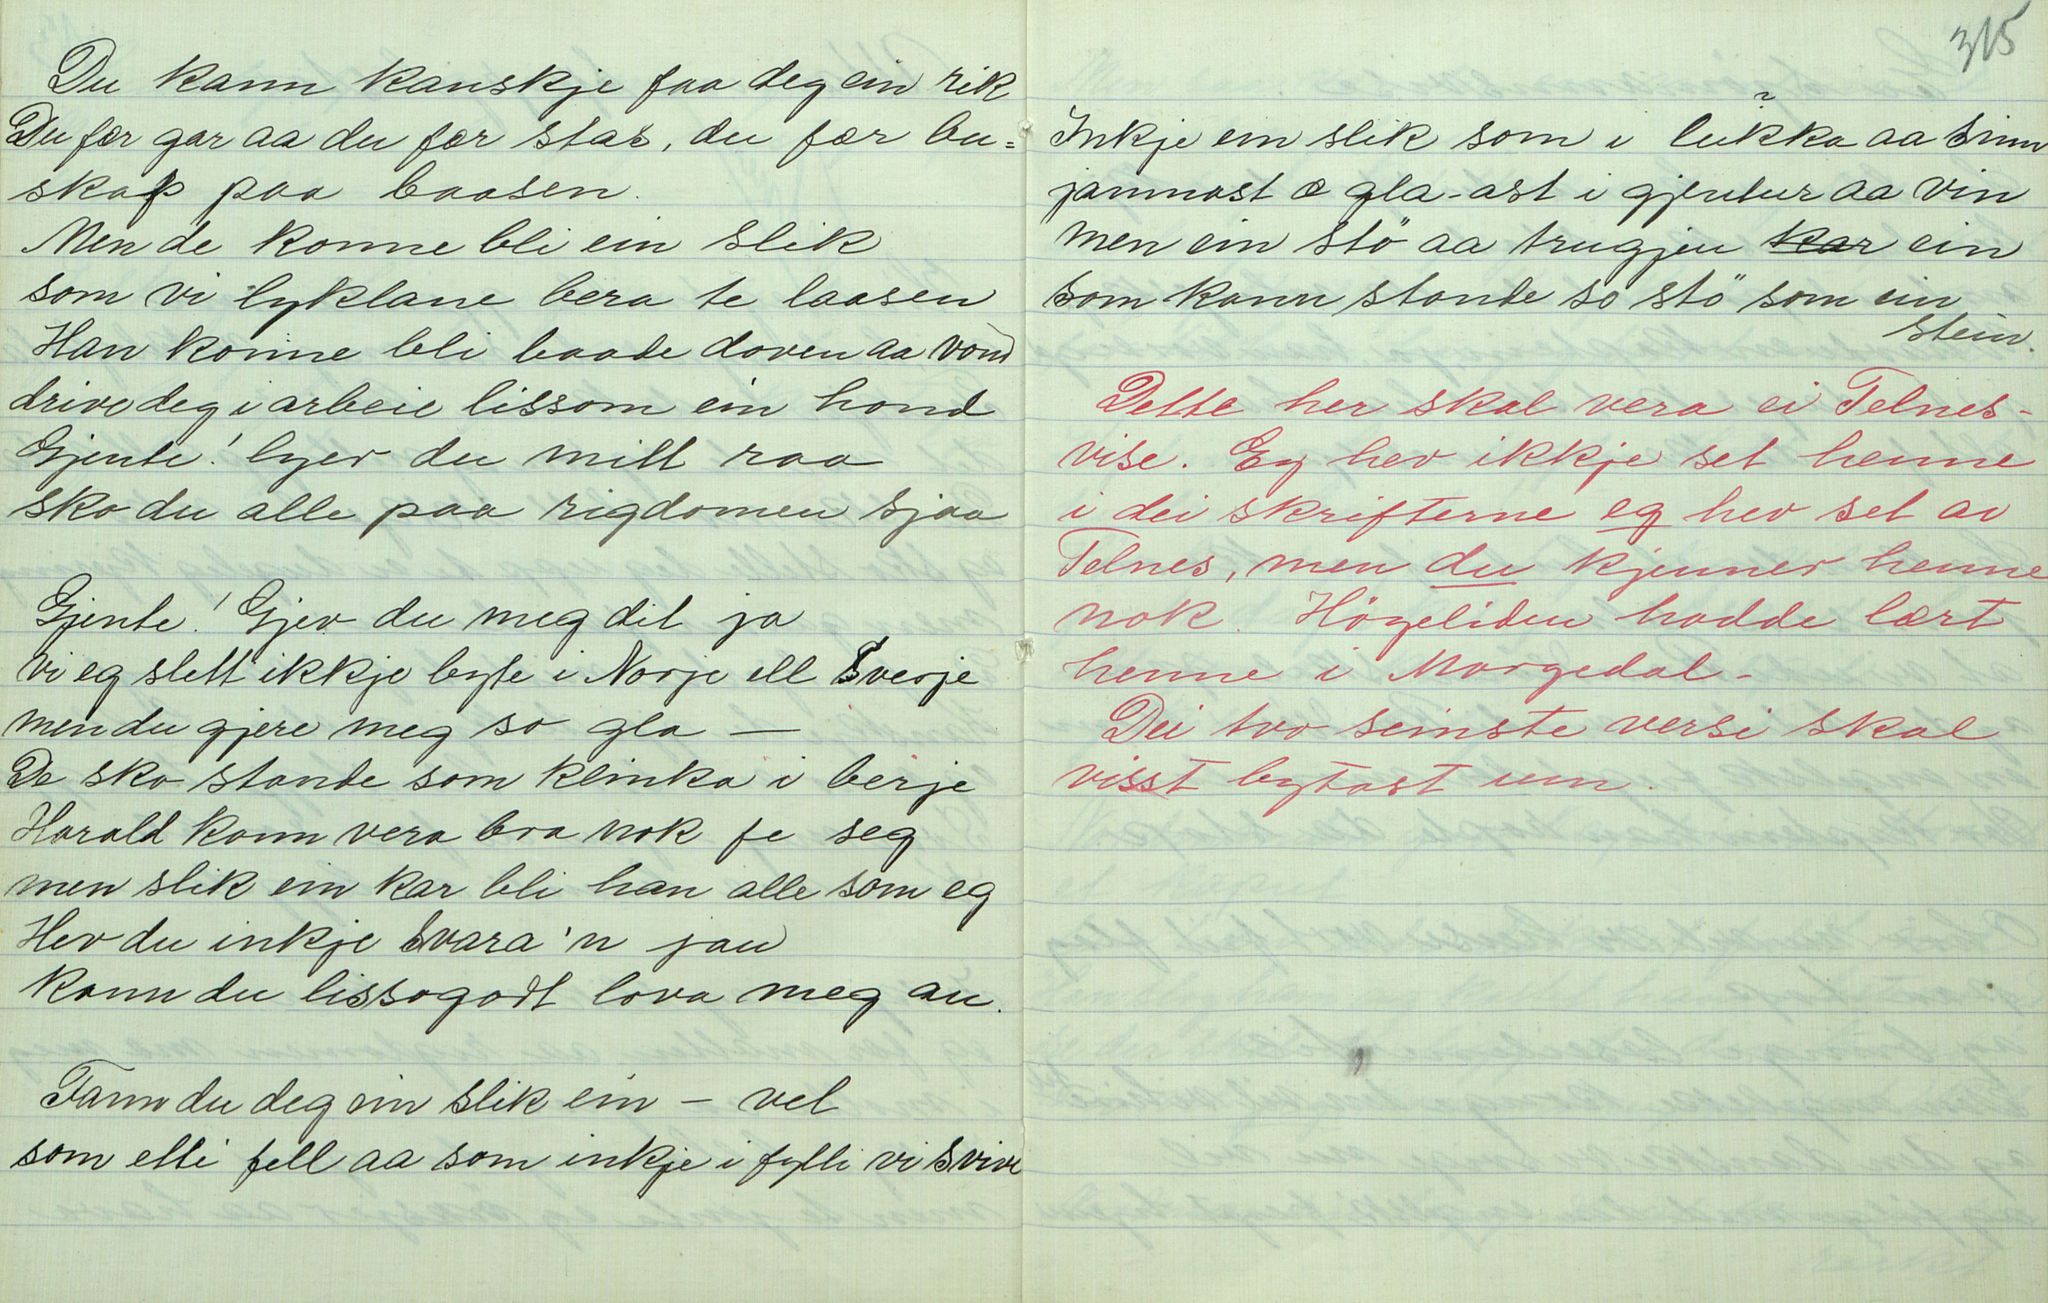 Du kann kanskje faa deg ein rik
Du fær gar aa du fær stas, du fær bu=
skap paa baasen.
Men de konne bli ein slik
som vi lyklane bera te laasen
Han konne bli baade doven aa vond
drive deg i arbeie lissom ein hond
Gjente! lyer du mitt raa
ska du alle paa rigdomen sjaa
Gjente! Gjev du meg dit ja
vi eg slett ikkje byte i Norje ell Sverje
men du gjere meg so gla —
De ska stande som klinka i berje
Harald kann vera bra nok fe seg
men slik ein kar bli han alle som eg
Hev du inkje svara'n jau
kann du lissogodt lova meg au.
Fann du deg ein slik ein — vel
som elti fell aa som inkje i fylli vi svive
315
Inkje ein slik som i lukka aa sinn
jamnast æ gla-ast i gjentur aa vin
men ein stö aa trugjen kar ein
som kann stande so stö som ein
stein.
Dette her skal vera ei Telnes-
vise. Eg hev ikkje set henne
i dei skrifterne eg hev set av
Telnes, men du kjenner henne
nok. Högeliden hadde lært
henne i Morgedal -
Dei tvo seinste versi skal
visst bytast um.